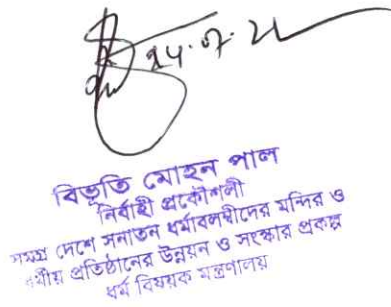 24.07.21
বিভূতি মোহন পাল
নির্বাহী প্রকৌশলী
সমগ্র দেশে সনাতন ধর্মাবলম্বীদের মন্দির ও
ধর্মীয় প্রতিষ্ঠানের উন্নয়ন ও সংস্কার প্রকল্প
ধর্ম বিষয়ক মন্ত্রণালয়